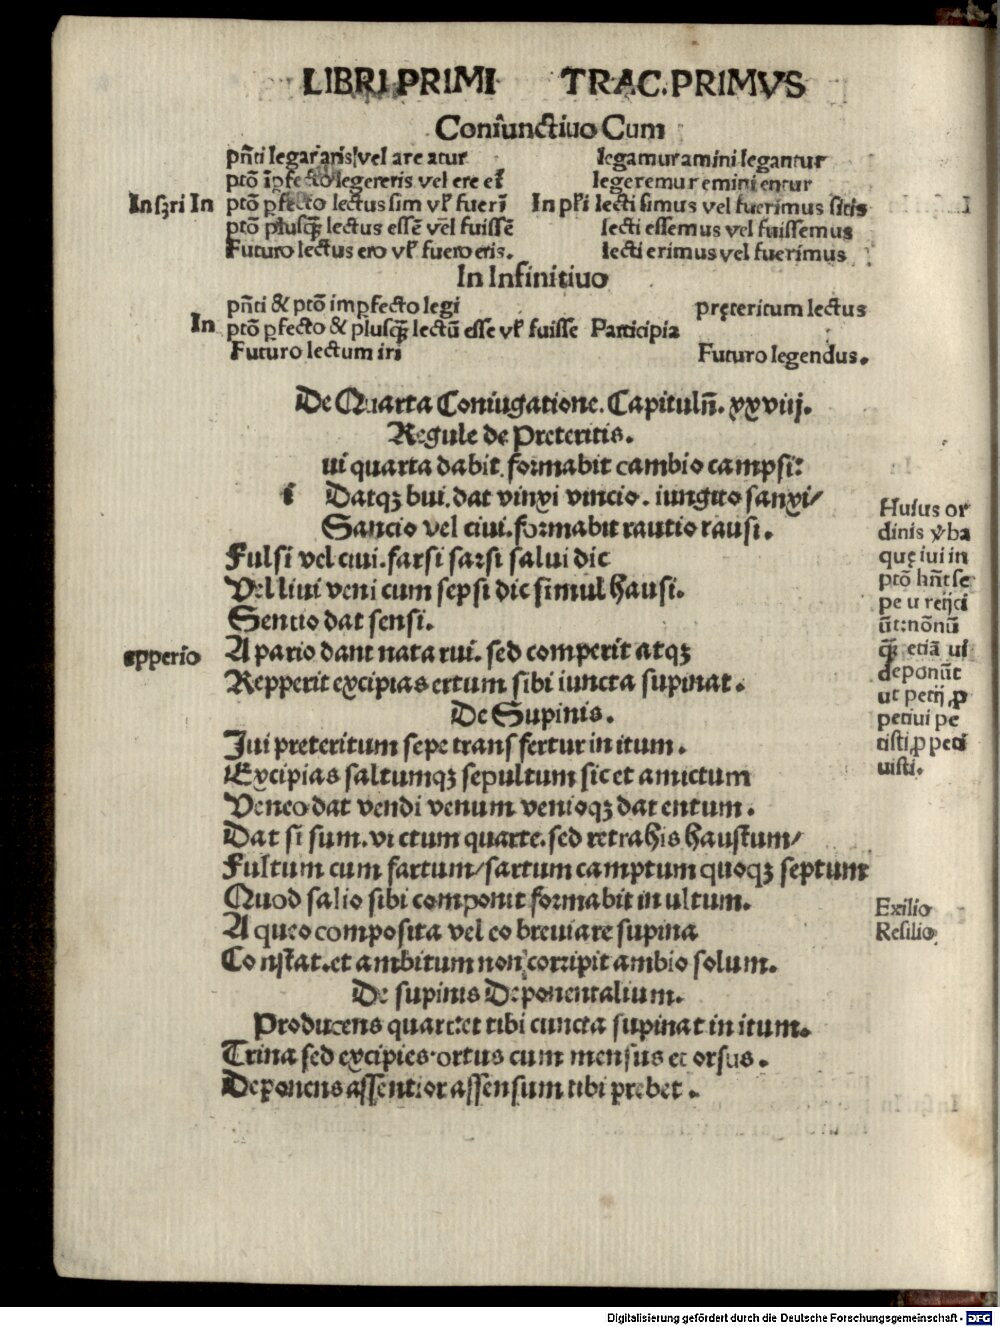 LIBRI PRIMI TRAC. PRIMVS
Coniunctiuo Cum
pñti legar aris vel are atur legamur amini legantur
ptō īpfecto legereris vel ere et̄ legeremur emini entur
In sꝫri In ptō ꝑfecto lectus sim vł fuerī In płi lecti simus vel fuerimus sitis
ptō plusqꝫ̄ lectus essē vel fuissē lecti essemus vel fuissemus
Futuro lectus ero vł fuero eris. lecti erimus vel fuerimus
In Infinitiuo
pñti & ptō impfecto legi pręteritum lectus
In ptō ꝑfecto & plusqꝫ̄ lectū esse vł fuisse Participia
Futuro lectum iri Futuro legendus.
De Quarta Coniugatione. Capitulū. xxviij.
Regule de Preteritis.
ui quarta dabit. formabit cambio campsi:
i Datqꝫ bui. dat vinxi vincio. iungito sanxi/
Sancio vel ciui. formabit rautio rausi.
Fulsi vel ciui. farsi sarsi salui dic
Vel liui veni cum sepsi dic simul hausi.
Sentio dat sensi.
epperio A pario dant nata rui. sed comperit atqꝫ
Repperit excipias ertum sibi iuncta supinat.
De Supinis.
Iui preteritum sepe transfertur in itum.
Excipias saltumqꝫ sepultum sic et amictum
Veneo dat vendi venum venioqꝫ dat entum.
Dat si sum. vi ctum quarte. sed retrahis haustum/
Fultum cum fartum/sartum camptum quoqꝫ septum
Quod salio sibi componit formabit in ultum.
A queo composita vel eo breuiare supina
Constat. et ambitum non corripit ambio solum.
De supinis Deponentalium.
Producens quart: et tibi cuncta supinat in itum.
Trina sed excipies. ortus cum mensus et orsus.
Deponens assentior assensum tibi prebet.
Huius or
dinis ꝟba
quę iui in
ptō hñt se
pe u reijci
ūt: nōnū
qꝫ̄ etiā ui
deponūt
ut petij ꝓ
petiui pe
tisti ꝓ peti
uisti.
Exilio
Resilio
Digitalisierung gefördert durch die Deutsche Forschungsgemeinschaft - DFG